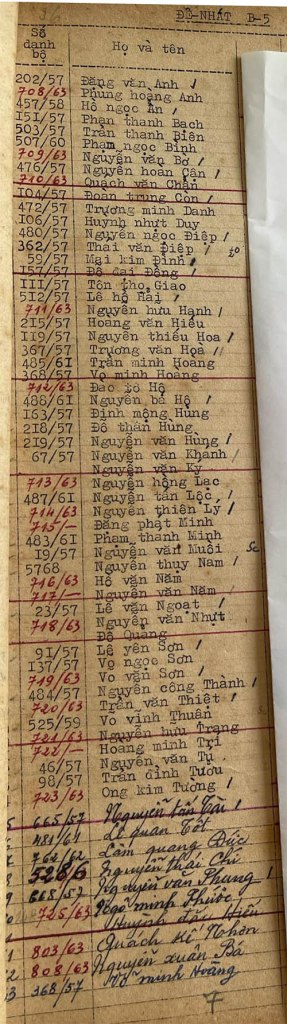 ĐỆ-NHẤT B-5
Số danh bộ Họ và tên
202/57 Đặng văn Anh /
708/63 Phùng hoàng Anh
457/58 Hồ ngọc Ẩn /
151/57 Phan thanh Bach
503/57 Trần thanh Biên
507/60 Phạm ngọc Bình
709/63 Nguyễn văn Bơ /
476/57 Nguyễn hoàn Cận /
710/63 Quách văn Chẩn
104/57 Đoàn trung Còn /
472/57 Trương minh Danh
106/57 Huỳnh nhựt Duy
480/57 Nguyễn ngọc Điệp /
362/57 Thái văn Điệp /
59/57 Mai kim Đỉnh /
157/57 Đỗ đại Đồng /
111/57 Tôn thọ Giao
512/57 Lê hồ Hải /
711/63 Nguyễn hữu Hạnh /
215/57 Hoàng văn Hiếu
119/57 Nguyễn thiếu Hoa /
367/57 Trương văn Hoa /
485/61 Trần minh Hoang
368/57 Vo minh Hoang
712/63 Đào tô Hộ
486/61 Nguyễn bá Hộ /
163/57 Định mộng Hùng
218/57 Đỗ thần Hùng
219/57 Nguyễn văn Hùng /
67/57 Nguyễn văn Khánh /
Nguyễn văn Ky
713/63 Nguyễn hồng Lạc
487/61 Nguyễn tấn Lộc /
714/63 Nguyễn thiện Ly /
715/- Đặng phát Minh
483/61 Phạm thanh Minh
19/57 Nguyễn văn Muôi
5768 Nguyễn thuỵ Nam /
716/63 Hồ văn Năm
717/- Nguyễn văn Năm
23/57 Lê văn Ngoạt /
718/63 Nguyễn văn Nhựt
Đỗ Quang
91/57 Lê yên Sơn /
137/57 Vo ngọc Sơn
719/63 Vo văn Sơn /
484/57 Nguyễn công Thành /
720/63 Trần văn Thiệt /
525/59 Vo vinh Thuân
721/63 Nguyễn hữu Trang
722/- Hoàng minh Trí
46/57 Nguyễn văn Tụ
98/57 Trần đình Tươu
723/63 Ong kim Tương /
665/57 Nguyễn tấn Tài /
481/61 Lê quan Tốt
762/62 Lâm quang Đức
5286 Nguyễn thái Chi
668/57 Nguyễn văn Phang /
725/63 Ngô minh Phước
Huỳnh đắc Hiếu
803/63 Quách kí Nhơn
808/63 Nguyễn xuân Bá
368/57 Võ minh Hoàng